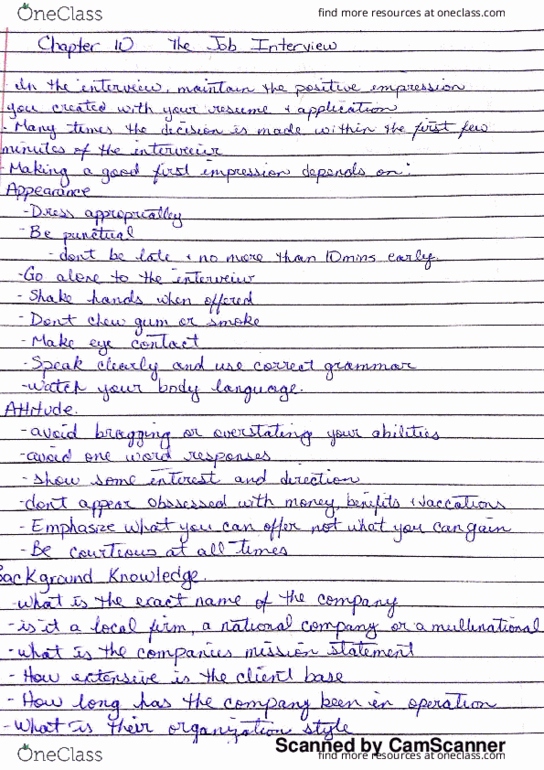 OneClass
find more resources at oneclass.com
Chapter 10 The Job Interview
- In the interview, maintain the positive impression
you created with your resume + application
- Many times the decision is made within the first few
minutes of the interview
- Making a good first impression depends on:
Appearance
- Dress appropriatly
- Be punctual
- dont be late + no more than 10mins early
- Go alone to the interview
- Shake hands when offered
- Dont chew gum or smoke
- Make eye contact
- Speak clearly and use correct grammar
- Watch your body language.
Attitude.
- avoid bragging or overstating your abilities
- avoid one word responses
- show some interest and direction
- dont appear obssessed with money, benifits + vaccations
- Emphasize what you can offer not what you can gain
- Be courtious at all times
Background Knowledge.
- what is the exact name of the company
- is it a local firm, a national company or a multinational
- what is the companies mission statement
- How extensive is the client base
- How long has the company been in operation
- What is their organization style
Scanned by CamScanner
OneClass
find more resources at oneclass.com